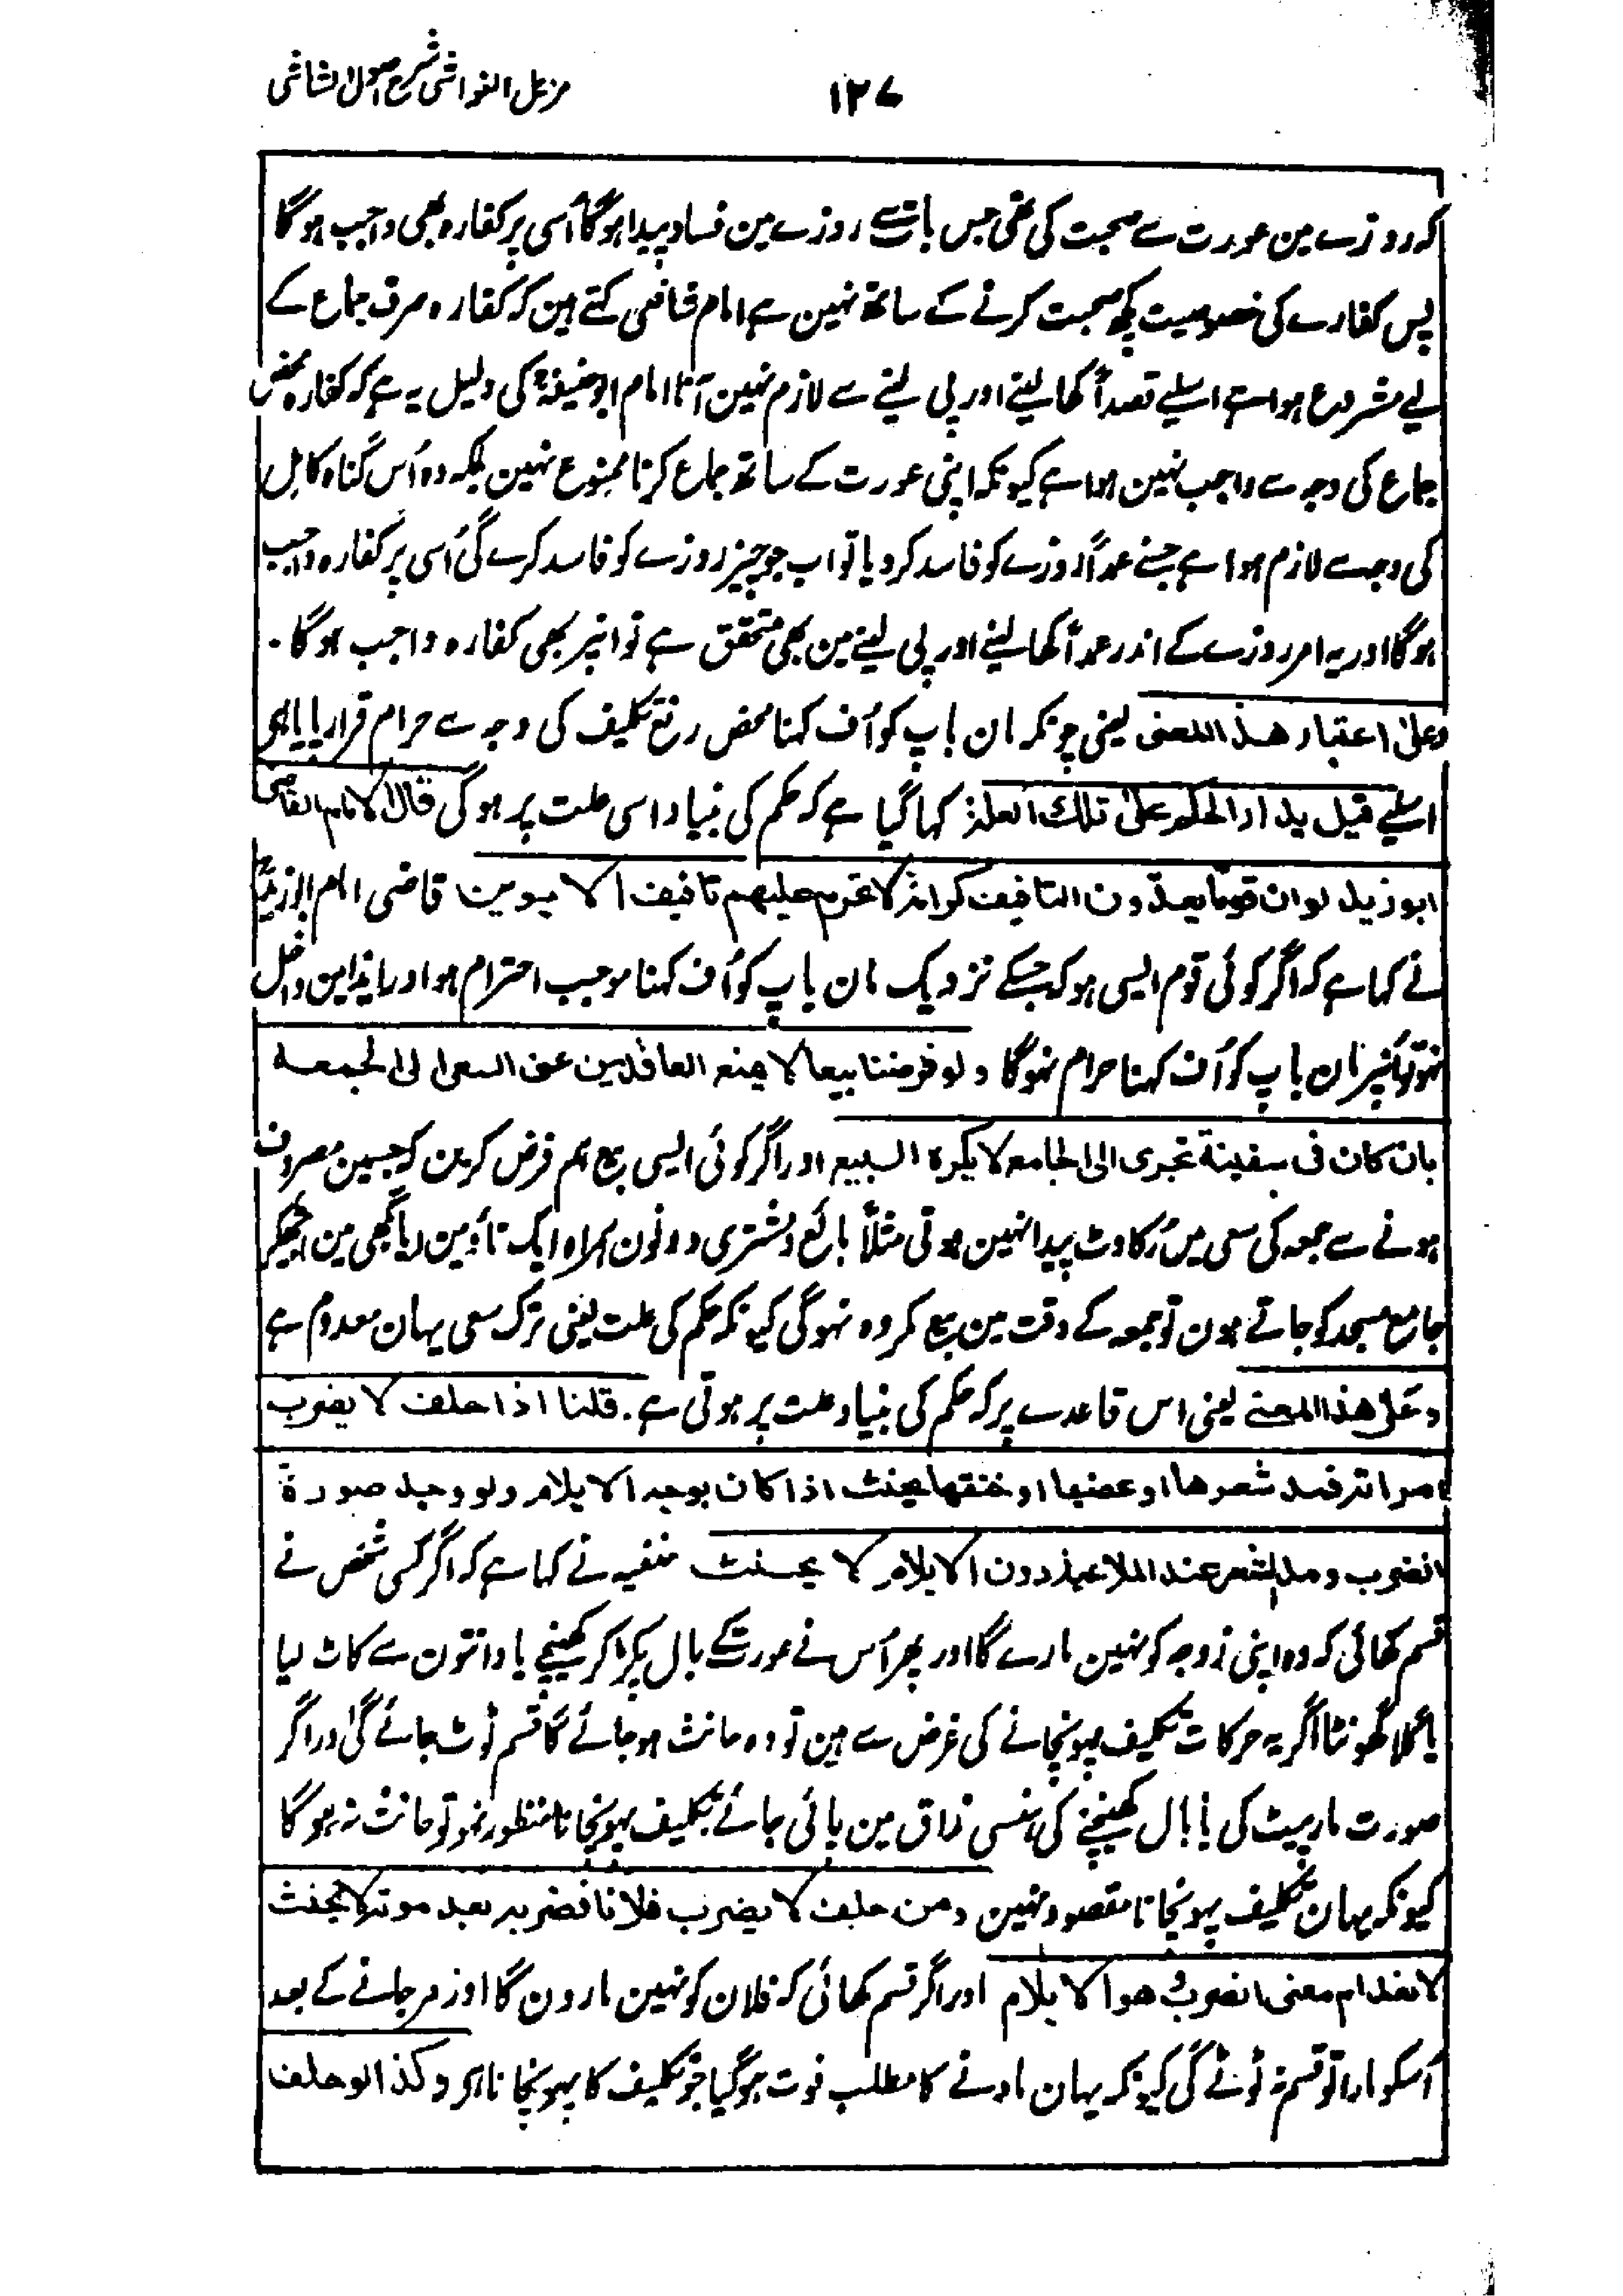 مزیل الغواشی شرح اصول الشاشی
۱۲۷
کہ روزے مین عورت سے صحبت کی تھی جس بات سے روزے مین فساد پیدا ہوگا اُسی پر کفارہ بھی واجب ہوگا
پس کفارے کی خصوصیت کچھ صحبت کرنے کے ساتھ نہین ہے امام شافعی کہتے ہین کہ کفارہ صرف جماع کے
لیے مشروع ہوا ہے اسلیے قصداً کھا لینے اور پی لینے سے لازم نہین آتا امام ابو حنیفہؒ کی دلیل یہ ہے کہ کفارہ محض
جماع کی وجہ سے واجب نہین ہوا ہے کیونکہ اپنی عورت کے ساتھ جماع کرنا ممنوع نہین بلکہ وہ اُس گناہ کامل
کی وجہ سے لازم ہوا ہے جسنے عمداً روزے کو فاسد کر دیا تو اب جو چیز روزے کو فاسد کرے گی اُسی پر کفارہ واجب
ہوگا اور یہ امر روزے کے اندر عمداً کھا لینے اور پی لینے مین بھی متحقق ہے تو انپر بھی کفارہ واجب ہوگا۔
وعلیٰ اعتبار ھذا المعنی یعنی چونکہ مان باپ کو اُف کہنا محض رفع تکلیف کی وجہ سے حرام قرار پایا ہی
اسلیے قیل یدار الحکم علیٰ تلک العلۃ کہا گیا ہے کہ حکم کی بنیاد اسی علت پر ہوگی قال الامام القاضی
ابو زید لو ان قوما یعدّون التافیف کرامۃ لا تحرم علیھم تافیف الابوین قاضی امام ابو زیدؒ
نے کہا ہے کہ اگر کوئی قوم ایسی ہو کہ جسکے نزدیک مان باپ کو اُف کہنا موجب احترام ہو اور ایذا مین داخل
نہو تو اُنپر مان باپ کو اُف کہنا حرام نہوگا ولو فرضنا بیعا لا یمنع العاقدین عن السعی الی الجمعۃ
بان کان فی سفینۃ تجری الی الجامع لا یکرہ البیع اور اگر کوئی ایسی بیع ہم فرض کرین کہ جسمین مصروف
ہونے سے جمعہ کی سعی میں رُکاوٹ پیدا نہین ہوتی مثلاً بائع و مشتری دونون ہمراہ ایک ناؤ مین یا بگھی مین بیٹھکر
جامع مسجد کو جاتے ہون تو جمعہ کے وقت مین بیع مکروہ نہوگی کیونکہ حکم کی علت یعنی ترک سعی یہان معدوم ہے
وعلیٰ ھذا المعنے یعنی اس قاعدے پر کہ حکم کی بنیاد علت پر ہوتی ہے۔ قلنا اذا حلف لا یضرب
امراتہ فمد شعرھا او عضھا او خنقھا یحنث اذا کان بوجہ الایلام ولو وجد صورۃ
الضرب ومد الشعر عند الملاعبۃ دون الایلام لا یحنث حنفیہ نے کہا ہے کہ اگر کسی شخص نے
قسم کھائی کہ وہ اپنی زوجہ کو نہین مارے گا اور پھر اُس نے عورت کے بال پکڑ کر کھینچے یا دانتون سے کاٹ لیا
یا گلا گھونٹا اگر یہ حرکات تکلیف پہونچانے کی غرض سے ہین تو وہ حانث ہو جائے گا قسم ٹوٹ جائے گی اور اگر
صورت مار پیٹ کی یا بال کھینچنے کی ہنسی مذاق مین پائی جائے تکلیف پہونچانا منظور نہو تو حانث نہ ہوگا
کیونکہ یہان تکلیف پہونچانا مقصود نہین ومن حلف لا یضرب فلانا فضربہ بعد موتہ لا یحنث
لانعدام معنی الضرب وھو الایلام اور اگر قسم کھائی کہ فلان کو نہین مارون گا اور مر جانے کے بعد
اُسکو مارا تو قسم نہ ٹوٹے گی کیونکہ یہان مارنے کا مطلب فوت ہوگیا جو تکلیف کا پہونچانا ہے وکذا لو حلف